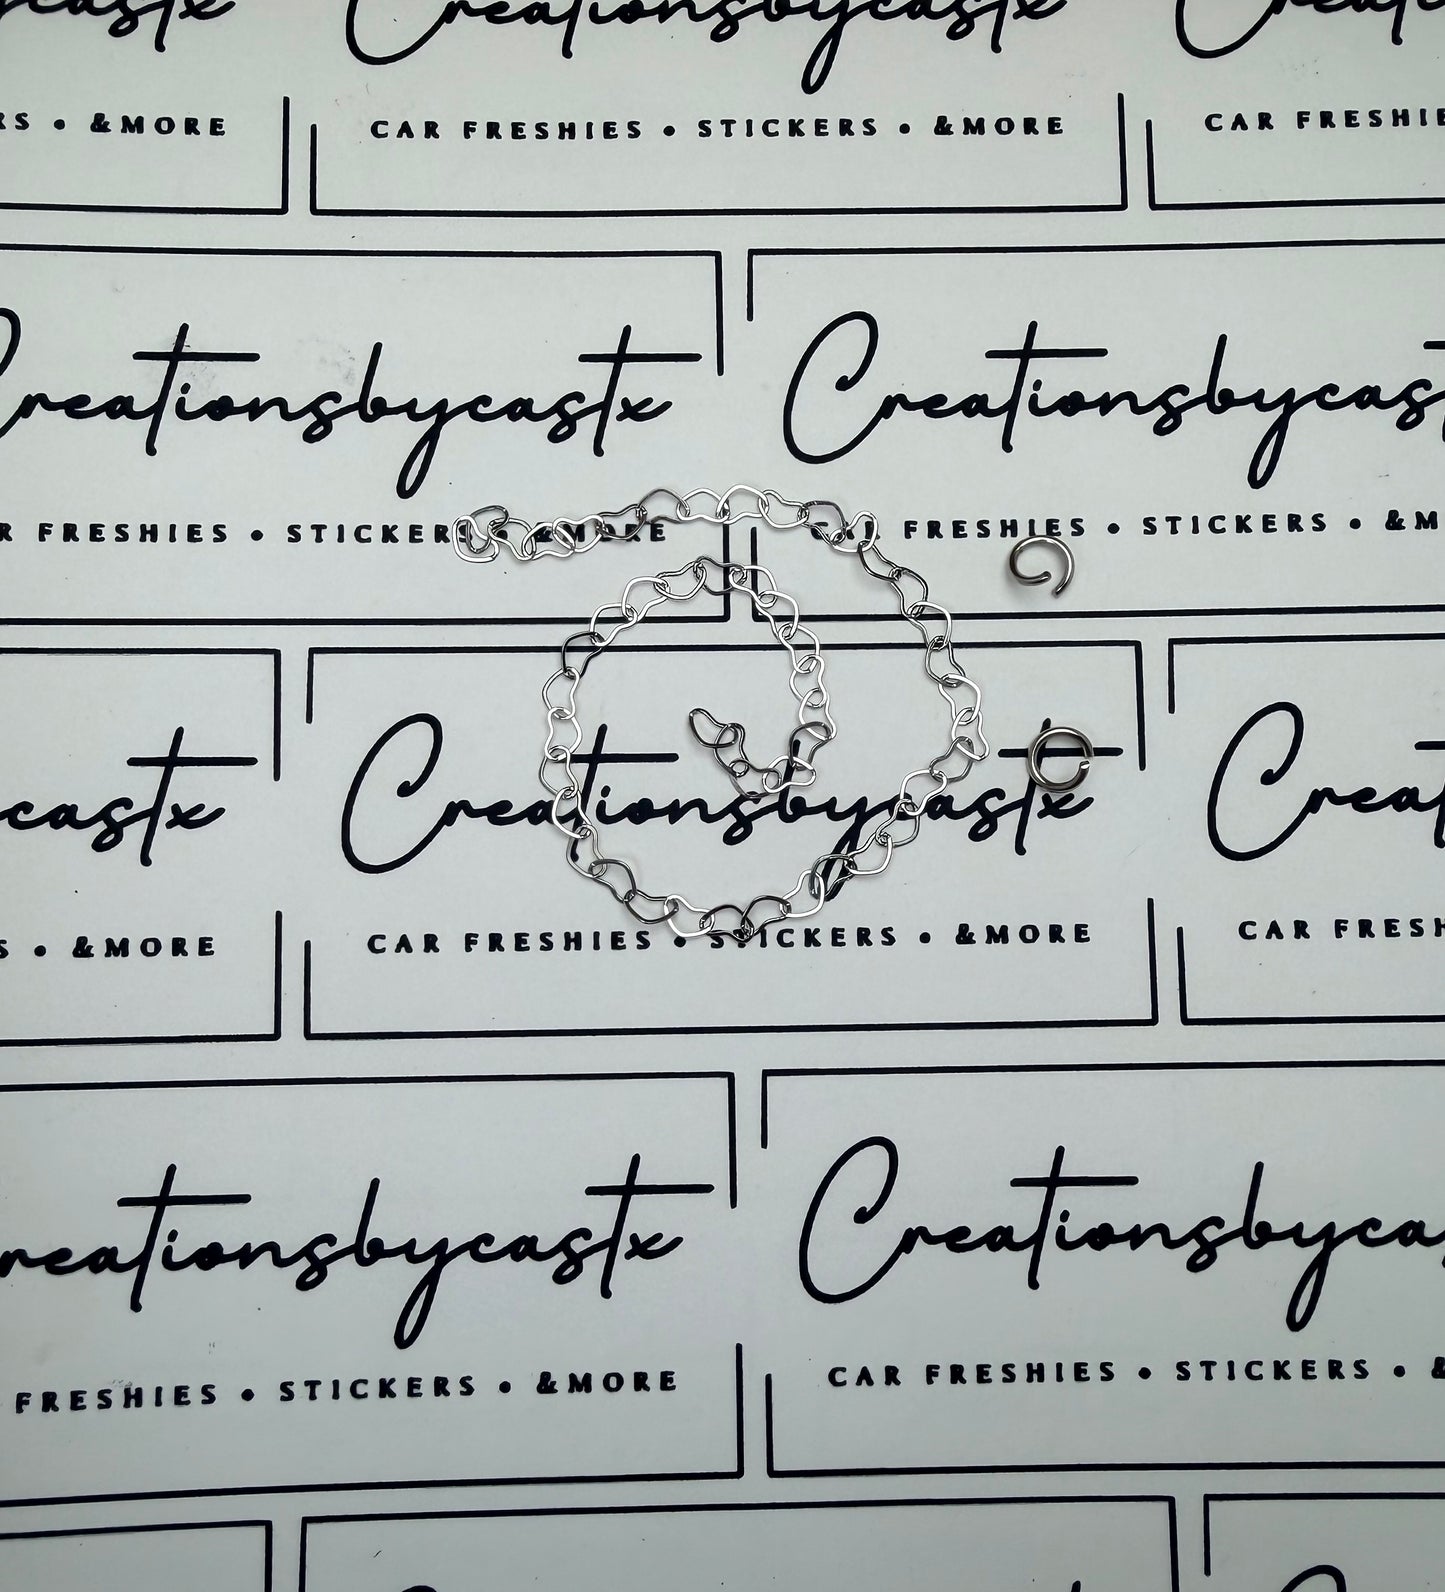 Creationsbycastx
RS • &MORE
CAR FRESHIES • STICKERS • &MORE
CAR FRESHIE
Creationsbycastx
Creationsbycast
R FRESHIES • STICKERS • &MORE
CAR FRESHIES • STICKERS • &M
castx
Creationsbycastx
Creat
S • &MORE
CAR FRESHIES • STICKERS • &MORE
CAR FRESH
reationsbycastx
Creationsbyca
FRESHIES • STICKERS • &MORE
CAR FRESHIES • STICKERS • &